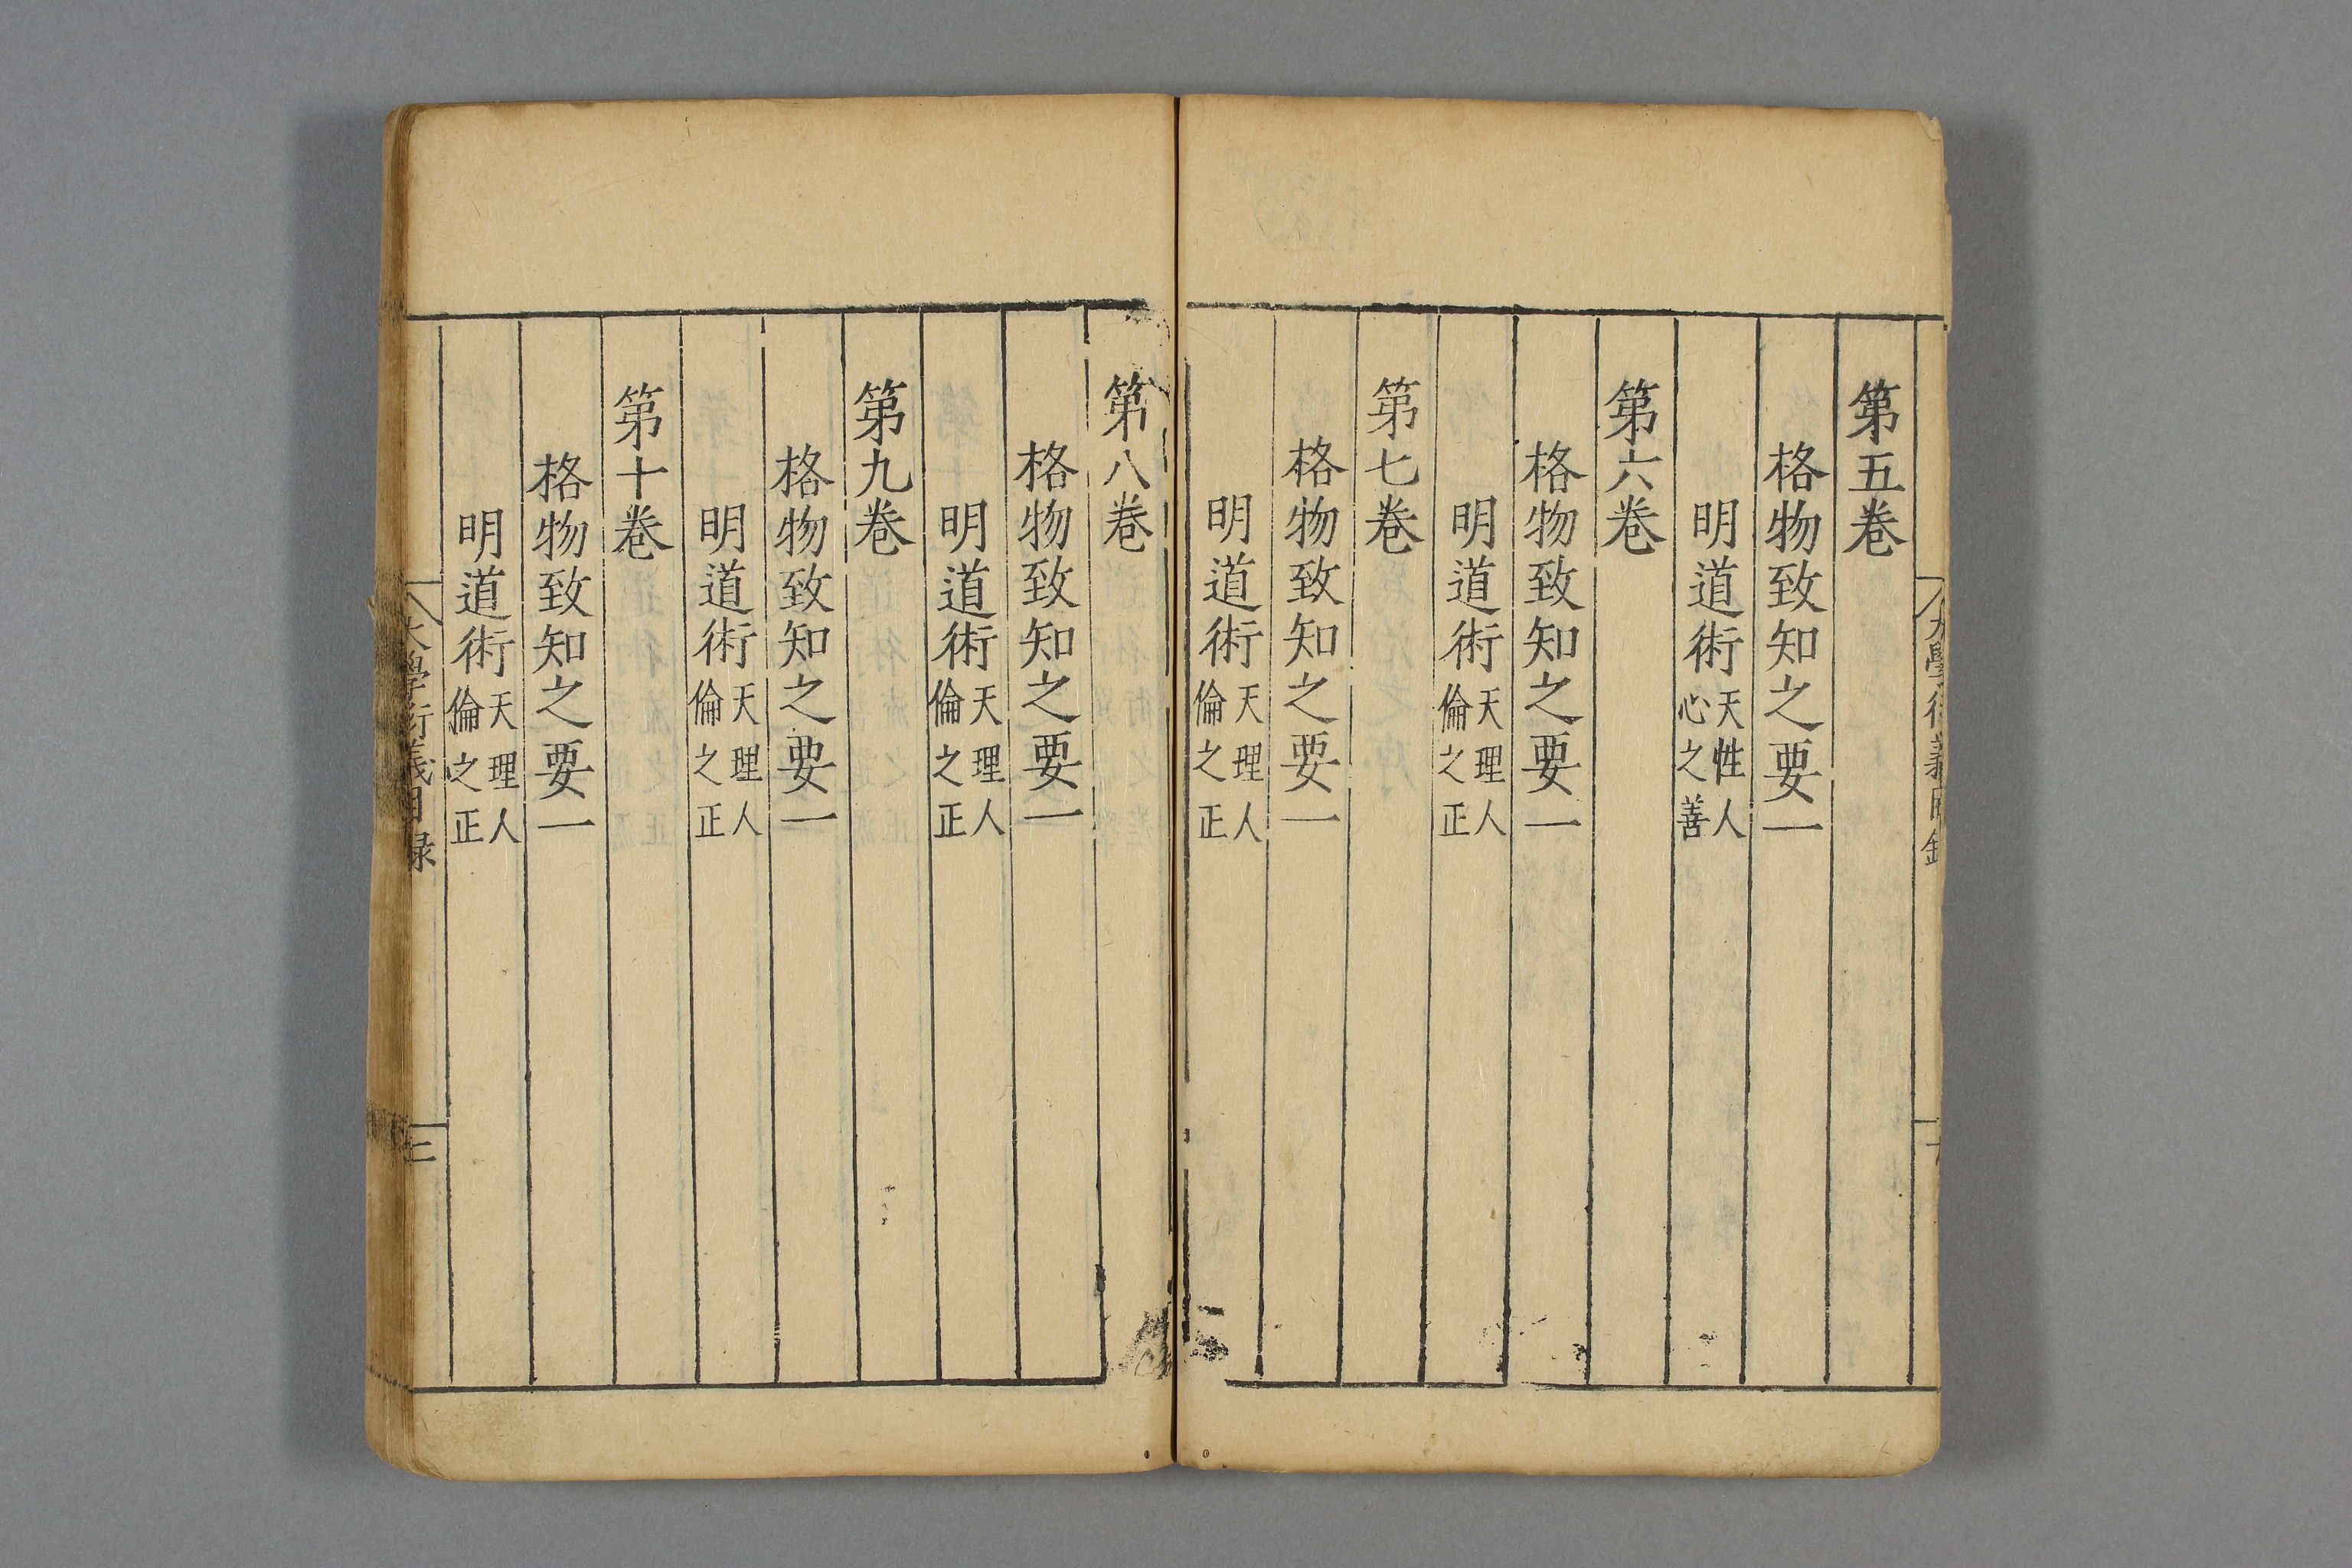 第五卷
格物致知之要一
明道術天性人心之善
第六卷
格物致知之要一
明道術天理人倫之正
第七卷
格物致知之要一
明道術天理人倫之正
第八卷
格物致知之要一
明道術天理人倫之正
第九卷
格物致知之要一
明道術天理人倫之正
第十卷
格物致知之要一
明道術天理人倫之正
大學衍義目録
三